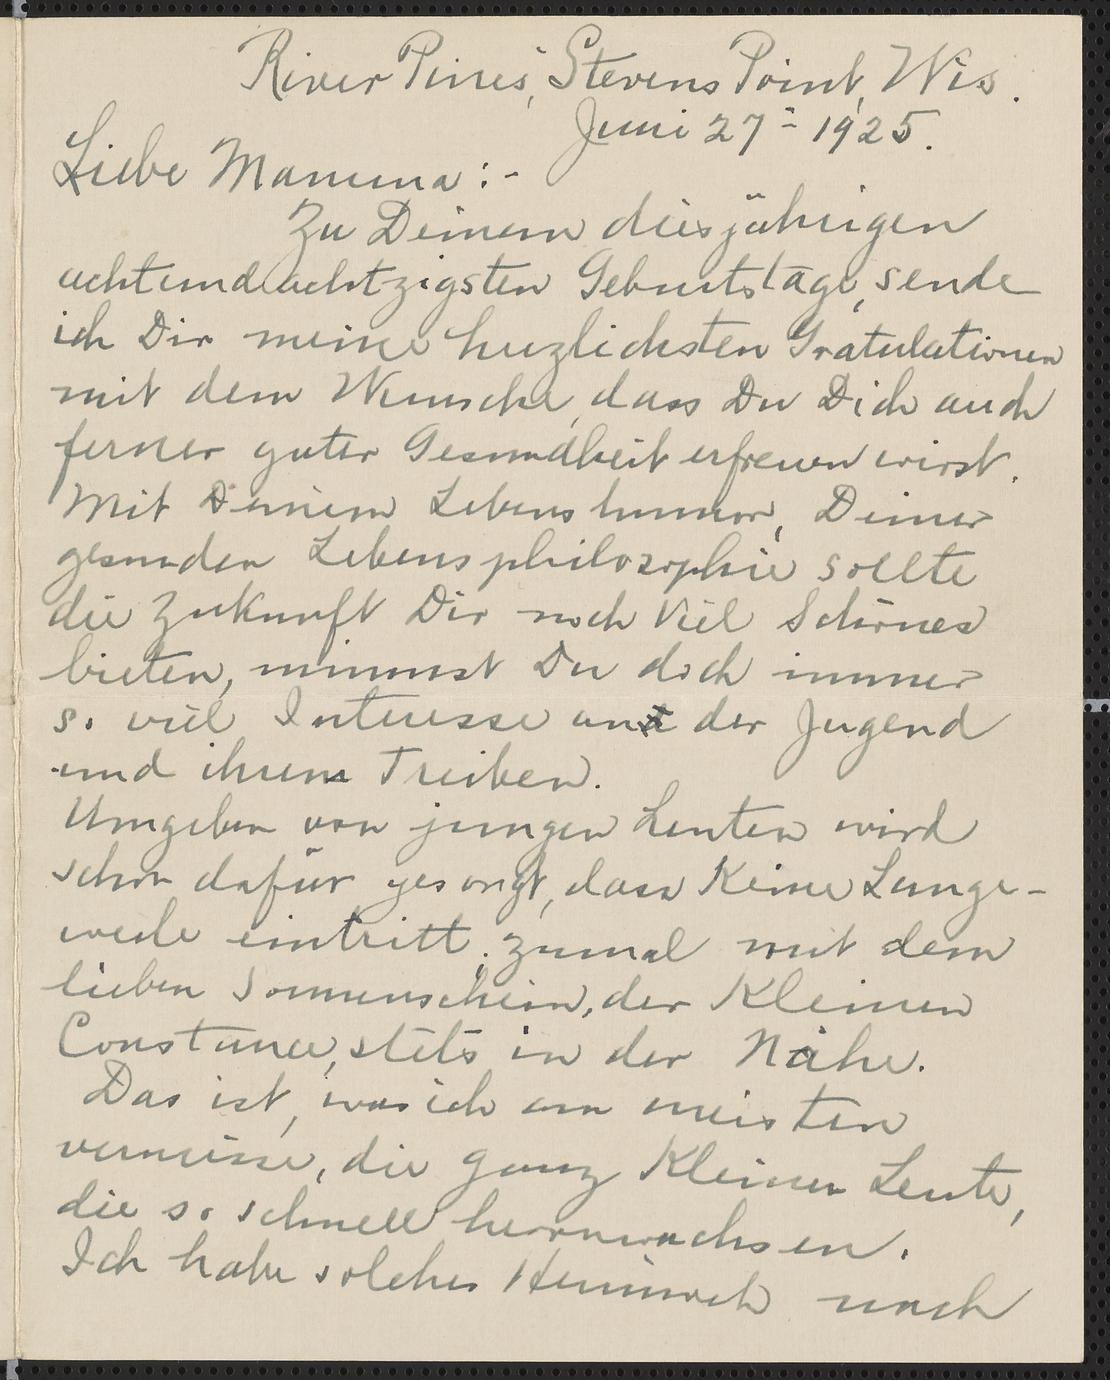 River Pines, Stevens Point, Wis.
Juni 27 - 1925.
Liebe Mamma :-
Zu Deinem diesjährigen
achtundachtzigsten Geburtstage, sende
ich Dir meine herzlichsten Gratulationen
mit dem Wunsche, dass Du Dich auch
ferner guter Gesundheit erfreuen wirst.
Mit Deinem Lebenshumor, Deiner
gesunden Lebensphilosophie sollte
die Zukunft Dir noch viel Schönes
bieten, nimmst Du doch immer
so viel Interesse an der Jugend
und ihrem Treiben.
Umgeben von jungen Leuten wird
schon dafür gesorgt, dass Keine Lange-
weile eintritt, zumal mit dem
lieben Sonnenschein, der Kleinen
Constance, stets in der Nähe.
Das ist, was ich am meisten
vermisse, die ganz Kleinen Leute,
die so schnell heranwachsen.
Ich habe solches Heimweh nach